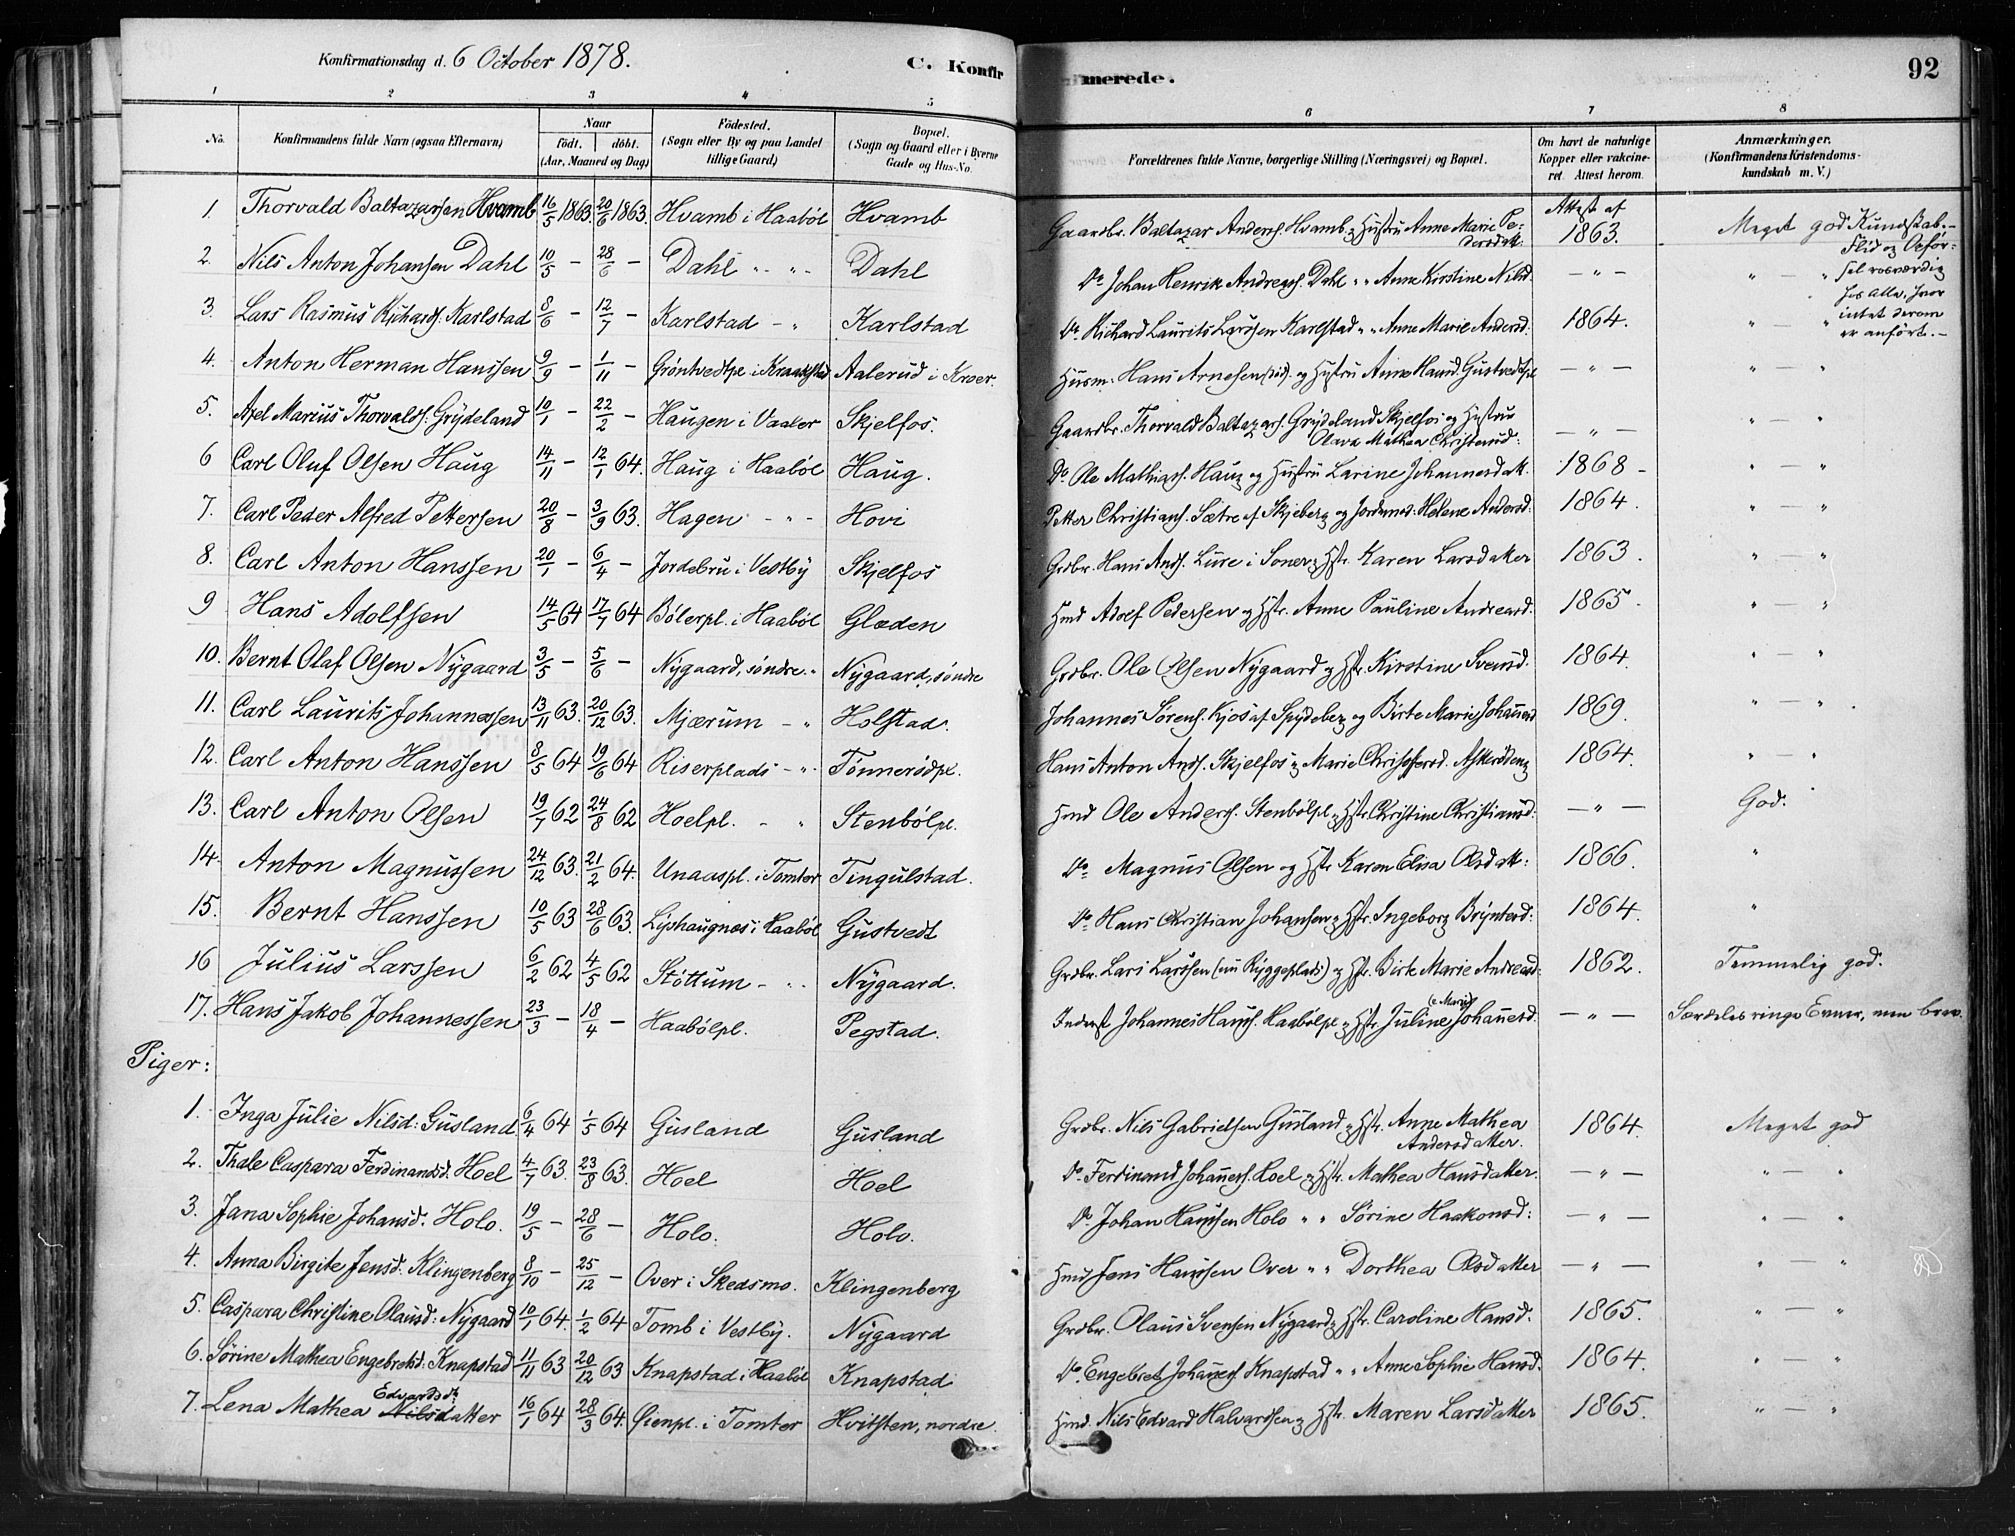 Konfirmationsdag d. 6 October 1878.
C. Konfirmerede.
92
1 2 3 4 5 6 7 8
No. | Konfirmandens fulde Navn (ogsaa Efternavn) | Naar födt. döbt. (Aar, Maaned og Dag) | Födested. (Sogn eller By og paa Landet tillige Gaard) | Bopæl. (Sogn og Gaard eller i Byerne Gade og Hus-No. | Forældrenes fulde Navne, borgerlige Stilling (Næringsvei) og Bopæl. | Om havt de naturlige Kopper eller vakcineret. Attest herom. | Anmærkninger. (Konfirmandens Kristendomskundskab m. V.)
1. Thorvald Baltazarsen Hvamb 16/5 1863. 20/6 1863. Hvamb i Haabøl Hvamb Gaardbr. Baltazar Anders. Hvamb og Hustru Anne Marie Pedersdat. Attest af 1863. Meget god Kundskab.-
2. Nils Anton Johansen Dahl 10/5 - 28/6 - Dahl " " Dahl Do Johan Henrik Andreas. Dahl " " Anne Kirstine Nilsd. - " - " - " Flid og Opførsel rosværdig
3. Lars Rasmus Richards. Karlstad 8/6 - 12/7 - Karlstad - " Karlstad Do Richard Laurits Larssen Karlstad " " Anne Marie Andersd. 1864. " " hos Alle, hvor intet derom er anført. -
4. Anton Herman Hanssen 9/9 - 1/11 - Grøntvedtpl. i Kraakstad Aalerud i Kroer. Husm. Hans Arnesen (død) og Hustru Anne Hansd. Gustvedtpl - " - " - "
5. Axel Marius Thorvalds. Grydeland 10/1 - 22/2 - Haugen i Vaaler Skjelfos. Gaardbr. Thorvald Baltazars. Grydeland Skjelfos og Hustru Olava Mathea Christensd: - " - " - "
6 Carl Oluf Olsen Haug 14/11 - 12/1 64. Haug i Haabøl Haug. Do Ole Mathias. Haug og Hustru Larine Johannesdat. 1868 - " - "
7. Carl Peder Alfred Pettersen 20/8 - 3/9 63. Hagen - " - Hovi Petter Christians. Sætre af Skjeberg og Jordemod. Helene Andersd: 1864. " - "
8. Carl Anton Hanssen 20/1 - 6/4 - Jordebru i Vestby Skjelfos Grdbr. Hans Ands. Lure i Soner og Hstr. Karen Larsdatter 1863. " - "
9 Hans Adolfsen 14/5 64 17/7 64 Bølerpl. i Haabøl Glæden Hmd Adolf Pedersen og Hstr. Anne Pauline Andreasd. 1865. " - "
10. Bernt Olaf Olsen Nygaard 3/5 - 5/6 - Nygaard, søndre " Nygaard, søndre Grdbr. Ole Olsen Nygaard og Hstr. Kirstine Svensd. 1864. " - "
11. Carl Laurits Johannessen 13/11 63. 20/12 63. Mjærum - " Holstad. Johannes Sørens. Kjos af Spydeberg og Birte Marie Johannesd 1869. " - " .
12. Carl Anton Hanssen 8/5 64 19/6 64 Riserplads - " Tønnerødpl. Hans Anton Ands. Skjelfos og Marie Christoffersd. Askerødeng 1864. " "
13. Carl Anton Olsen 19/7 62 24/8 62 Hoelpl. - " Stenbølpl. Hmd Ole Anders. Stenbølpl. og Hstr Christine Christiansd: - " - God.
14. Anton Magnussen 24/12 63. 21/2 64. Unaaspl. i Tomter Tingulstad. Do Magnus Olsen og Hstr Karen Elisa Olsdatt: 1866. "
15. Bernt Hanssen 10/5 63 28/6 63. Lyshaugnes i Haabøl Gustvedt Do Hans Christian Johansen og Hstr. Ingeborg Brynterd: 1864. "
16 Julius Larssen 6/2 62 4/5 62 Støttum - " Nygaard. Grdbr. Lars Larssen (nu Ryggeplads) og Hstr. Birte Marie Andreasd: 1862. Temmelig god.
17. Hans Jakob Johannessen 23/3 - 18/4 - Haabølpl. Pegstad. Inderst Johannes Hanss. Haabølpl og Hstr Juline (e Marie) Johannesd. - " - Særdeles ringe Evner, men brav.
Piger:
1. Inga Julie Nilsd: Gusland. 6/4 64 1/5 64 Gusland Gusland Grdbr. Nils Gabrielsen Gusland og Hstr. Anne Mathea Andersdatter. 1864. Meget god
2. Thale Caspara Ferdinandsd. Hoel 4/7 63. 23/8 63. Hoel Hoel Do Ferdinand Johannes. Loel og Hstr. Mathea Hansdatter. - " - " - "
3. Jana Sophie Johansd. Holo. 19/5 - 28/6 - Holo. Holo. Do Johan Hanssen Holo " " Sørine Haakonsd: - " - " - "
4. Anna Birgite Jensd. Klingenberg 8/10 - 25/12 - Over i Skedsmo. Klingenberg Hmd Jens Hanssen Over " " Dorthea Olsdatter - " - " - "
5. Caspara Christine Olausd: Nygaard 10/1 64. 1/2 64 Tomb i Vestby. Nygaard Grdbr. Olaus Svensen Nygaard og Hstr. Caroline Hansd. 1865. " - "
6. Sørine Mathea Engebretsd: Knapstad 11/11 63 20/12 63 Knapstad i Haabøl Knapstad Do. Engebret Johannes Knapstad " " Anne Sophie Hansd. 1864. " - "
7. Lena Mathea Edvardsdt Nilsdatter 16/1 64 28/3 64. Øienpl. i Tomter Hvitsten, nordre. Hmd. Nils Edvard Halvardsen og Hstr. Maren Larsdatter 1865. " - "